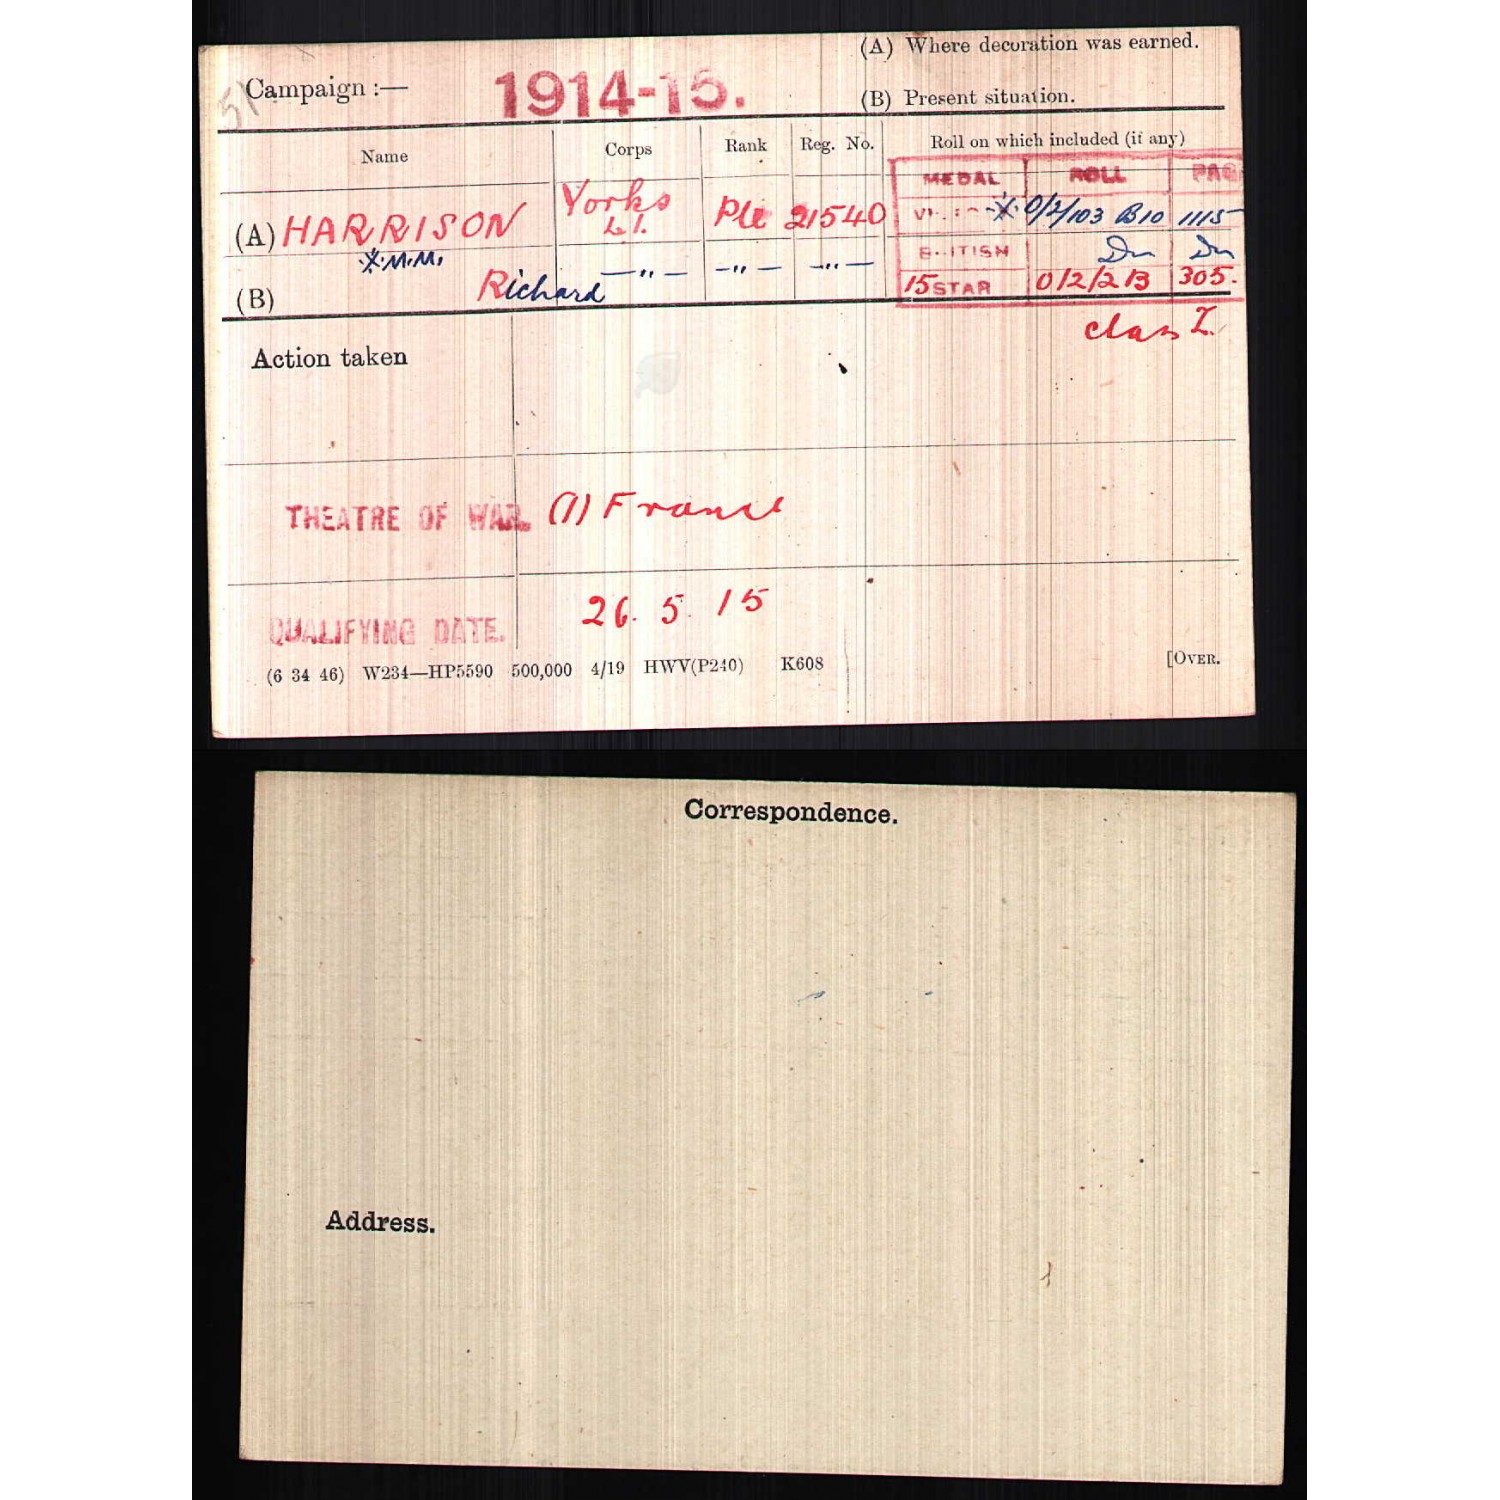 (A) Where decoration was earned.
51 Campaign :— 1914-15.
(B) Present situation.
Name Corps Rank Reg. No. Roll on which included (if any)
MEDAL ROLL PAG
(A) HARRISON Yorks L.I. Pte 21540 0/2/103 B10 1115
X.M.M. BRITISH Do Do
(B) Richard —"— —"— —"— 15 STAR 0/2/2 B 305.
class Z.
Action taken
THEATRE OF WAR. (1) France
26. 5. 15
QUALIFYING DATE.
(6 34 46) W234—HP5590 500,000 4/19 HWV(P240) K608 [OVER.
Correspondence.
Address.